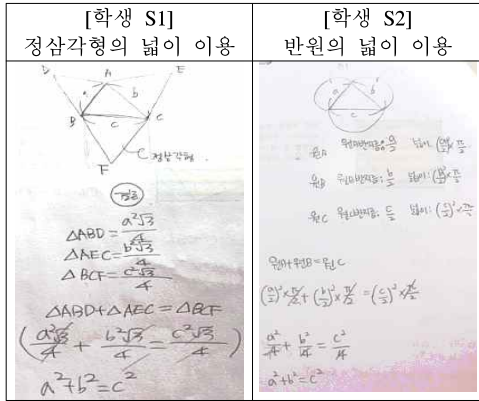 [학생 S1]
정삼각형의 넓이 이용
D A E
a b
B c C
C 정삼각형
F
△ABD = a²√3/4
△AEC = b²√3/4
△BCF = c²√3/4
△ABD+△AEC = △BCF
(a²√3/4 + b²√3/4 = c²√3/4)
a²+b²=c²
[학생 S2]
반원의 넓이 이용
a b
c
원A 원의반지름: a/2 넓이: (a/2)²×π/2
원B 원의반지름: b/2 넓이: (b/2)²×π/2
원C 원의반지름: c/2 넓이: (c/2)²×π/2
원A+원B = 원C
(a/2)²×π/2 + (b/2)²×π/2 = (c/2)²×π/2
a²/4 + b²/4 = c²/4
a²+b²=c²